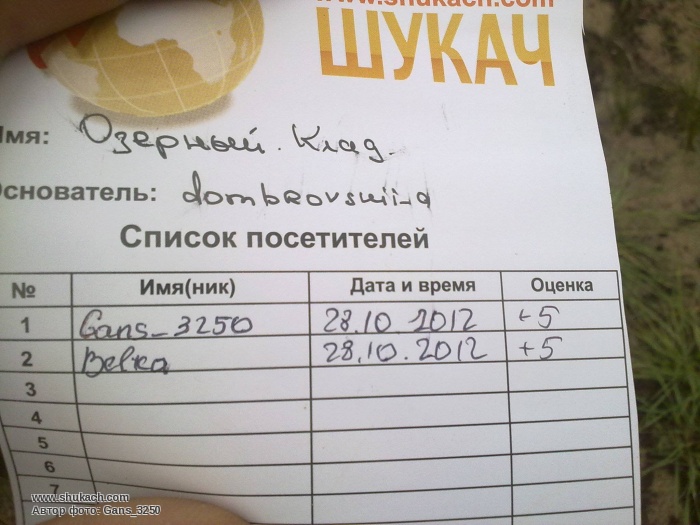 www.shukach.com
ШУКАЧ
Имя: Озерный Клад.
Основатель: dombrovskii-a
Список посетителей
№ Имя(ник) Дата и время Оценка
1 Gans_3250 28.10.2012 +5
2 Belka 28.10.2012 +5
3
4
5
6
7
www.shukach.com
Автор фото: Gans_3250